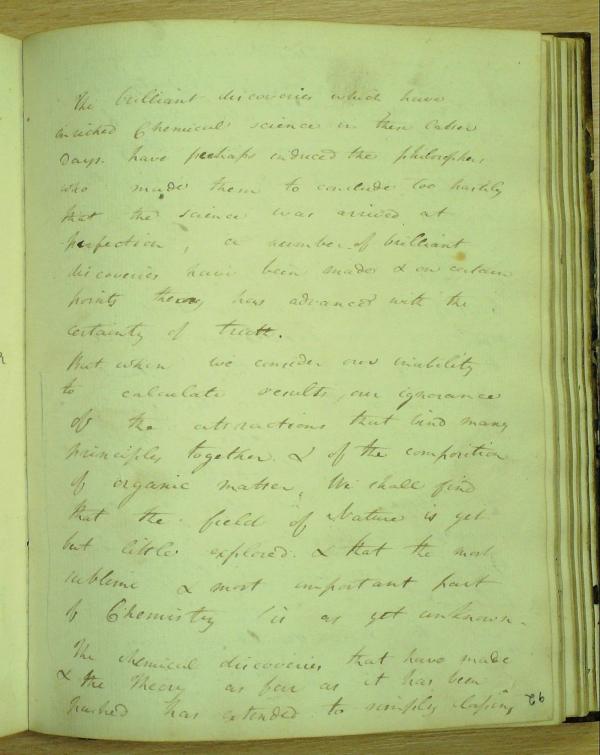 The brilliant discoveries which have
enriched Chemical science in these latter
Days. have perhaps induced the philosophers
who made them to conclude too hastily
that the science was arrived at
perfection, a number of brilliant
discoveries have been made & on certain
points theory has advanced with the
certainty of truth.
But when we consider our inability
to calculate results, our ignorance
of the attractions that bind many
principles together. & of the composition
of organic matter, We shall find
that the field of Nature is yet
but little explored. & that the most
sublime & most important part
of Chemistry is as yet unknown.
The chemical discoveries that have made
& the Theory as far as it has been
pushed has extended to simply classing
92